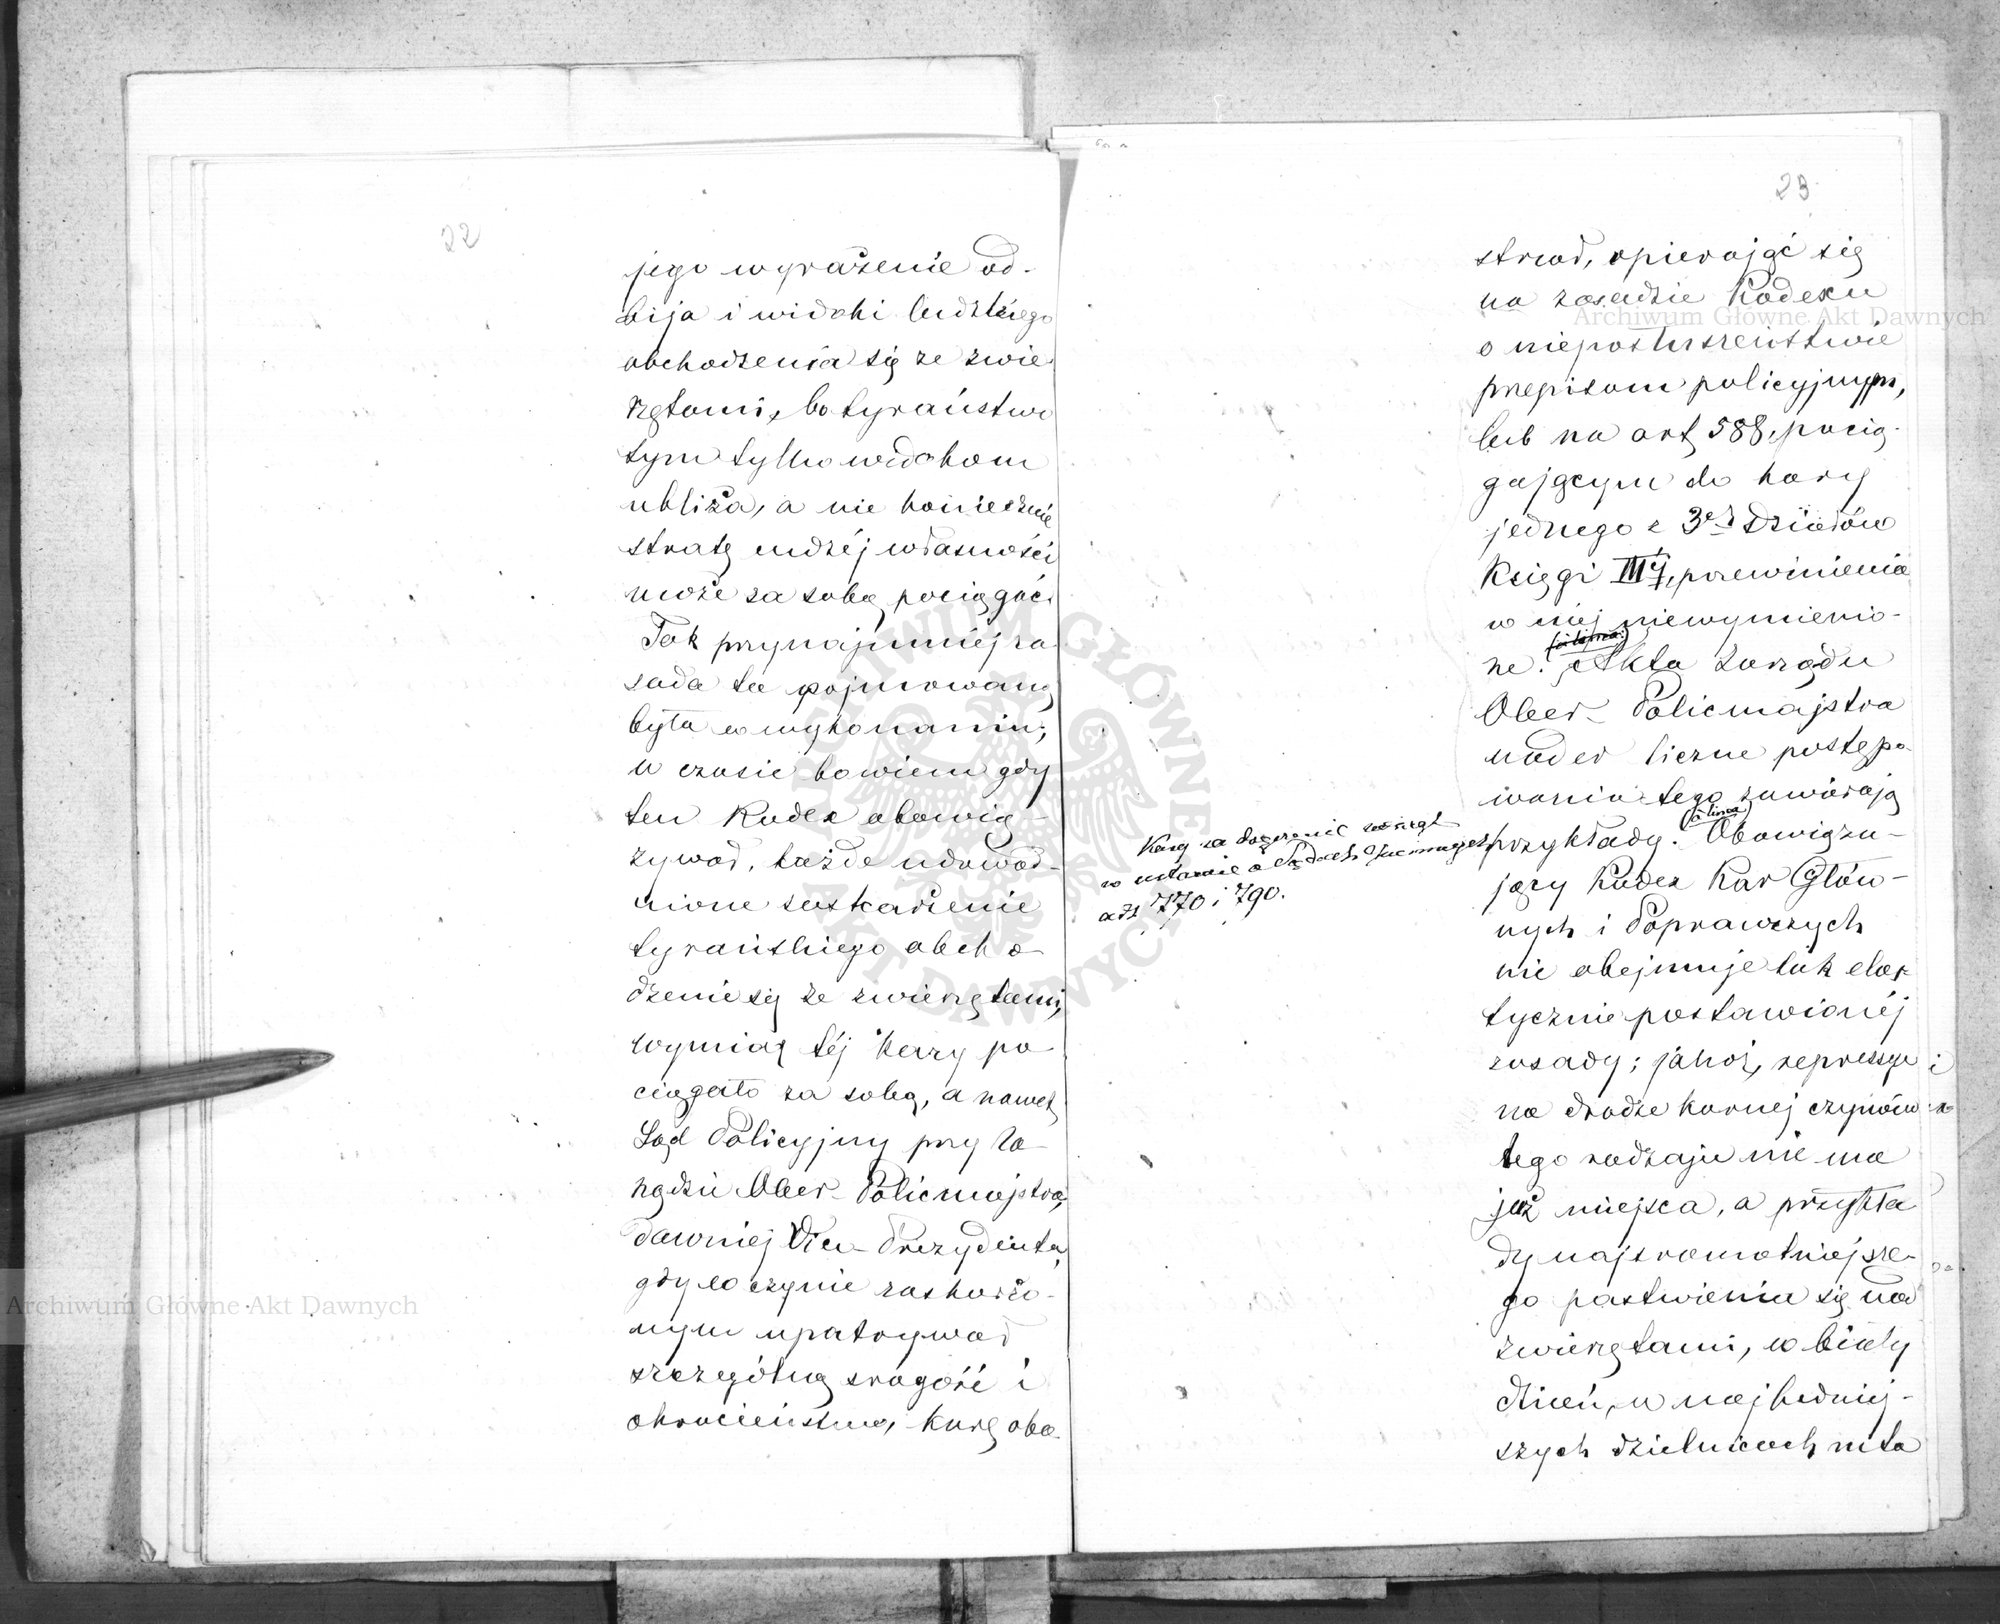 22
jego wyrażenie od-
bija i widoki ludzkiego
obchodzenia się ze zwie-
rzętami, bo tyraństwo
tym tylko widokom
ubliża, a nie koniecznie
stratę cudzéj własności
może za sobą pociągać.
Tak przynajmniéj za-
sada ta pojmowaną
była w wykonaniu;
w czasie bowiem gdy
ten Kodex obowią-
zywał, każde udowod-
nione zaskarżenie
tyrańskiego obcho-
dzenie się ze zwierzętami,
wymiar téj kary po-
ciągało za sobą, a nawet
Sąd Policyjny przy Za-
rządzie Ober-Policmajstra,
dawniej Vice-Prezydenta,
gdy w czynie zaskarżo-
nym upatrywał
szczególną srogość i
okrucieństwo, karę obo-
23
strzał, opierając się
na zasadzie Kodexu
o nieposłuszeństwie
przepisom policyjnym,
lub na art 588, pocią-
gającym do kary
jednego z 3ch działów
Księgi IIIéj, przewinienia
w niéj niewymienio-
(a linea)
ne. Akta Zarządu
Ober-Policmajstra
nader liczne postępo-
wania tego zawierają
(a linea)
przykłady. Obowiązu-
jący Kodex Kar Głów-
nych i Poprawczych
nie obejmuje tak elas-
tycznie postawionéj
zasady; jakoż, represya
na drodze karnej czynów
tego rodzaju nie ma
już miejsca, a przykła-
dy najsromotniejsze-
go pastwienia się nad
zwierzętami, w biały
dzień, w najludniej-
szych dzielnicach mia
Kary za dręczenie zwierząt
w ustawie o Sądach Gminnych
art 770 i 790.